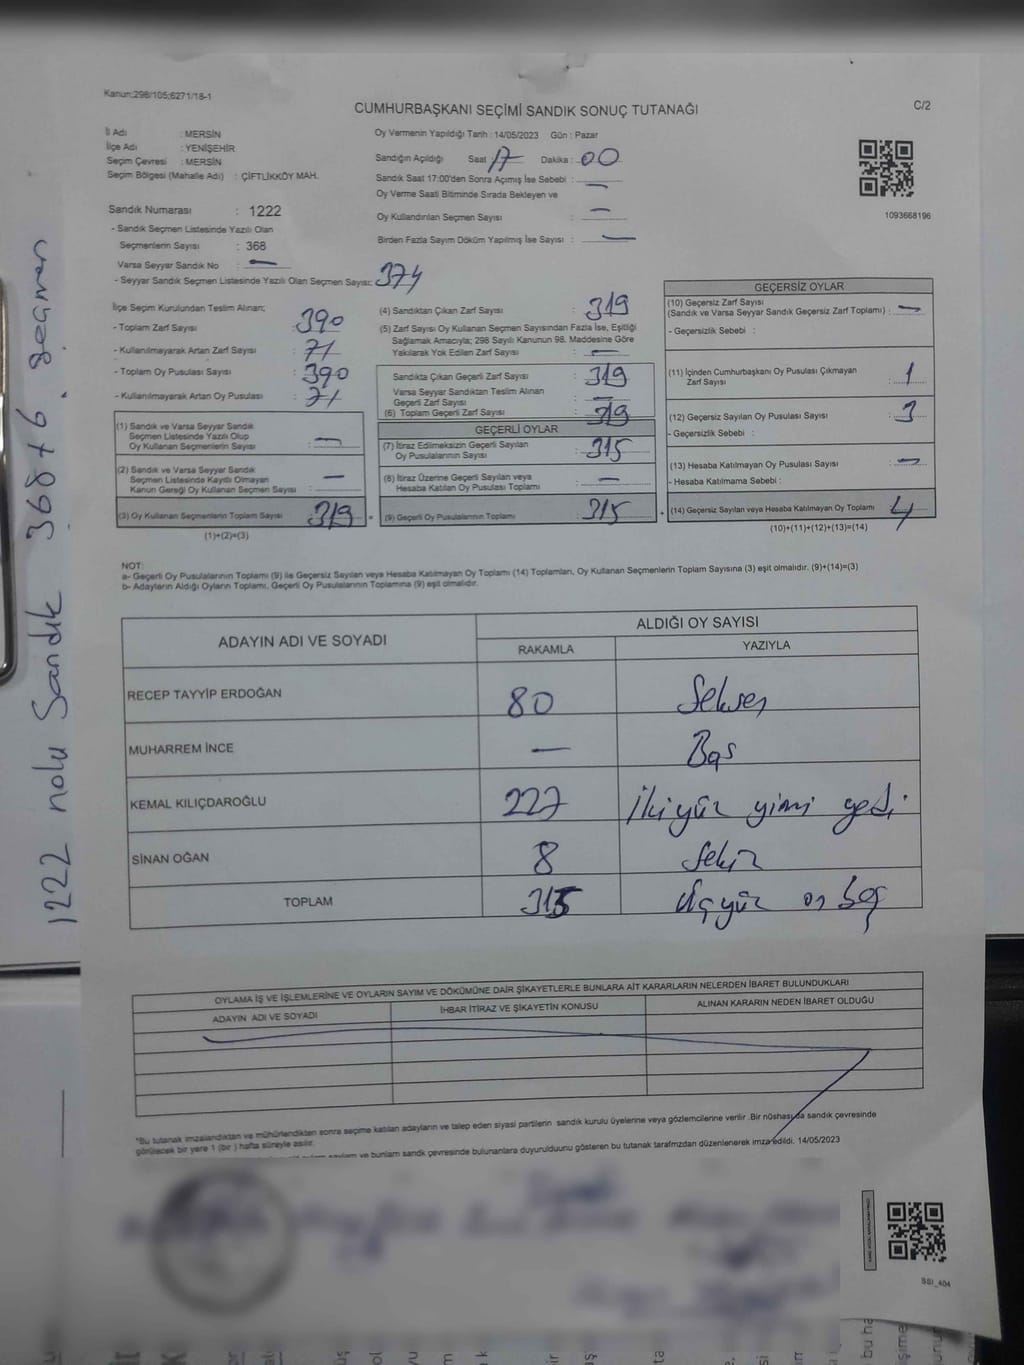 Kanun;298/105;6271/18-1
CUMHURBAŞKANI SEÇİMİ SANDIK SONUÇ TUTANAĞI
C/2
İl Adı : MERSİN
İlçe Adı : YENİŞEHİR
Seçim Çevresi : MERSİN
Seçim Bölgesi (Mahalle Adı) : ÇİFTLİKKÖY MAH.
Sandık Numarası : 1222
- Sandık Seçmen Listesinde Yazılı Olan
Seçmenlerin Sayısı : 368
Varsa Seyyar Sandık No : —
- Seyyar Sandık Seçmen Listesinde Yazılı Olan Seçmen Sayısı: 374
Oy Vermenin Yapıldığı Tarih : 14/05/2023 Gün : Pazar
Sandığın Açıldığı Saat : 17 Dakika : 00
Sandık Saat 17:00'den Sonra Açımış İse Sebebi : —
Oy Verme Saati Bitiminde Sırada Bekleyen ve
Oy Kullandırılan Seçmen Sayısı : —
Birden Fazla Sayım Döküm Yapılmış İse Sayısı : —
1093668196
İlçe Seçim Kurulundan Teslim Alınan;
- Toplam Zarf Sayısı : 390
- Kullanılmayarak Artan Zarf Sayısı : 71
- Toplam Oy Pusulası Sayısı : 390
- Kullanılmayarak Artan Oy Pusulası : 71
(1) Sandık ve Varsa Seyyar Sandık
Seçmen Listesinde Yazılı Olup
Oy Kullanan Seçmenlerin Sayısı : —
(2) Sandık ve Varsa Seyyar Sandık
Seçmen Listesinde Kayıtlı Olmayan
Kanun Gereği Oy Kullanan Seçmen Sayısı : —
(3) Oy Kullanan Seçmenlerin Toplam Sayısı : 319
(1)+(2)=(3)
(4) Sandıktan Çıkan Zarf Sayısı : 319
(5) Zarf Sayısı Oy Kullanan Seçmen Sayısından Fazla İse, Eşitliği
Sağlamak Amacıyla; 298 Sayılı Kanunun 98. Maddesine Göre
Yakılarak Yok Edilen Zarf Sayısı : —
Sandıkta Çıkan Geçerli Zarf Sayısı : 319
Varsa Seyyar Sandıktan Teslim Alınan
Geçerli Zarf Sayısı : —
(6) Toplam Geçerli Zarf Sayısı : 319
GEÇERLİ OYLAR
(7) İtiraz Edilmeksizin Geçerli Sayılan
Oy Pusulalarının Sayısı : 315
(8) İtiraz Üzerine Geçerli Sayılan veya
Hesaba Katılan Oy Pusulası Toplamı : —
(9) Geçerli Oy Pusulalarının Toplamı : 315
GEÇERSİZ OYLAR
(10) Geçersiz Zarf Sayısı
(Sandık ve Varsa Seyyar Sandık Geçersiz Zarf Toplamı) : —
- Geçersizlik Sebebi :
(11) İçinden Cumhurbaşkanı Oy Pusulası Çıkmayan
Zarf Sayısı : 1
(12) Geçersiz Sayılan Oy Pusulası Sayısı : 3
- Geçersizlik Sebebi :
(13) Hesaba Katılmayan Oy Pusulası Sayısı : —
- Hesaba Katılmama Sebebi :
(14) Geçersiz Sayılan veya Hesaba Katılmayan Oy Toplamı : 4
(10)+(11)+(12)+(13)=(14)
NOT:
a- Geçerli Oy Pusulalarının Toplamı (9) ile Geçersiz Sayılan veya Hesaba Katılmayan Oy Toplamı (14) Toplamları, Oy Kullanan Seçmenlerin Toplam Sayısına (3) eşit olmalıdır. (9)+(14)=(3)
b- Adayların Aldığı Oyların Toplamı, Geçerli Oy Pusulalarının Toplamına (9) eşit olmalıdır.
ADAYIN ADI VE SOYADI ALDIĞI OY SAYISI
RAKAMLA YAZIYLA
RECEP TAYYİP ERDOĞAN 80 Seksen
MUHARREM İNCE — Boş
KEMAL KILIÇDAROĞLU 227 İkiyüz yirmi yedi
SİNAN OĞAN 8 Sekiz
TOPLAM 315 Üçyüz on beş
OYLAMA İŞ VE İŞLEMLERİNE VE OYLARIN SAYIM VE DÖKÜMÜNE DAİR ŞİKAYETLERLE BUNLARA AİT KARARLARIN NELERDEN İBARET BULUNDUKLARI
ADAYIN ADI VE SOYADI İHBAR İTİRAZ VE ŞİKAYETİN KONUSU ALINAN KARARIN NEDEN İBARET OLDUĞU
*Bu tutanak imzalandıktan ve mühürlendikten sonra seçime katılan adayların ve talep eden siyasi partilerin sandık kurulu üyelerine veya gözlemcilerine verilir .Bir nüshası da sandık çevresinde
görülecek bir yere 1 (bir ) hafta süreyle asılır.
ve bunların sandk çevresinde bulunanlara duyurulduunu gösteren bu tutanak tarafmzdan düzenlenerek imza edildi. 14/05/2023
SSI_404
1222 nolu Sandık 368+6. seçmen